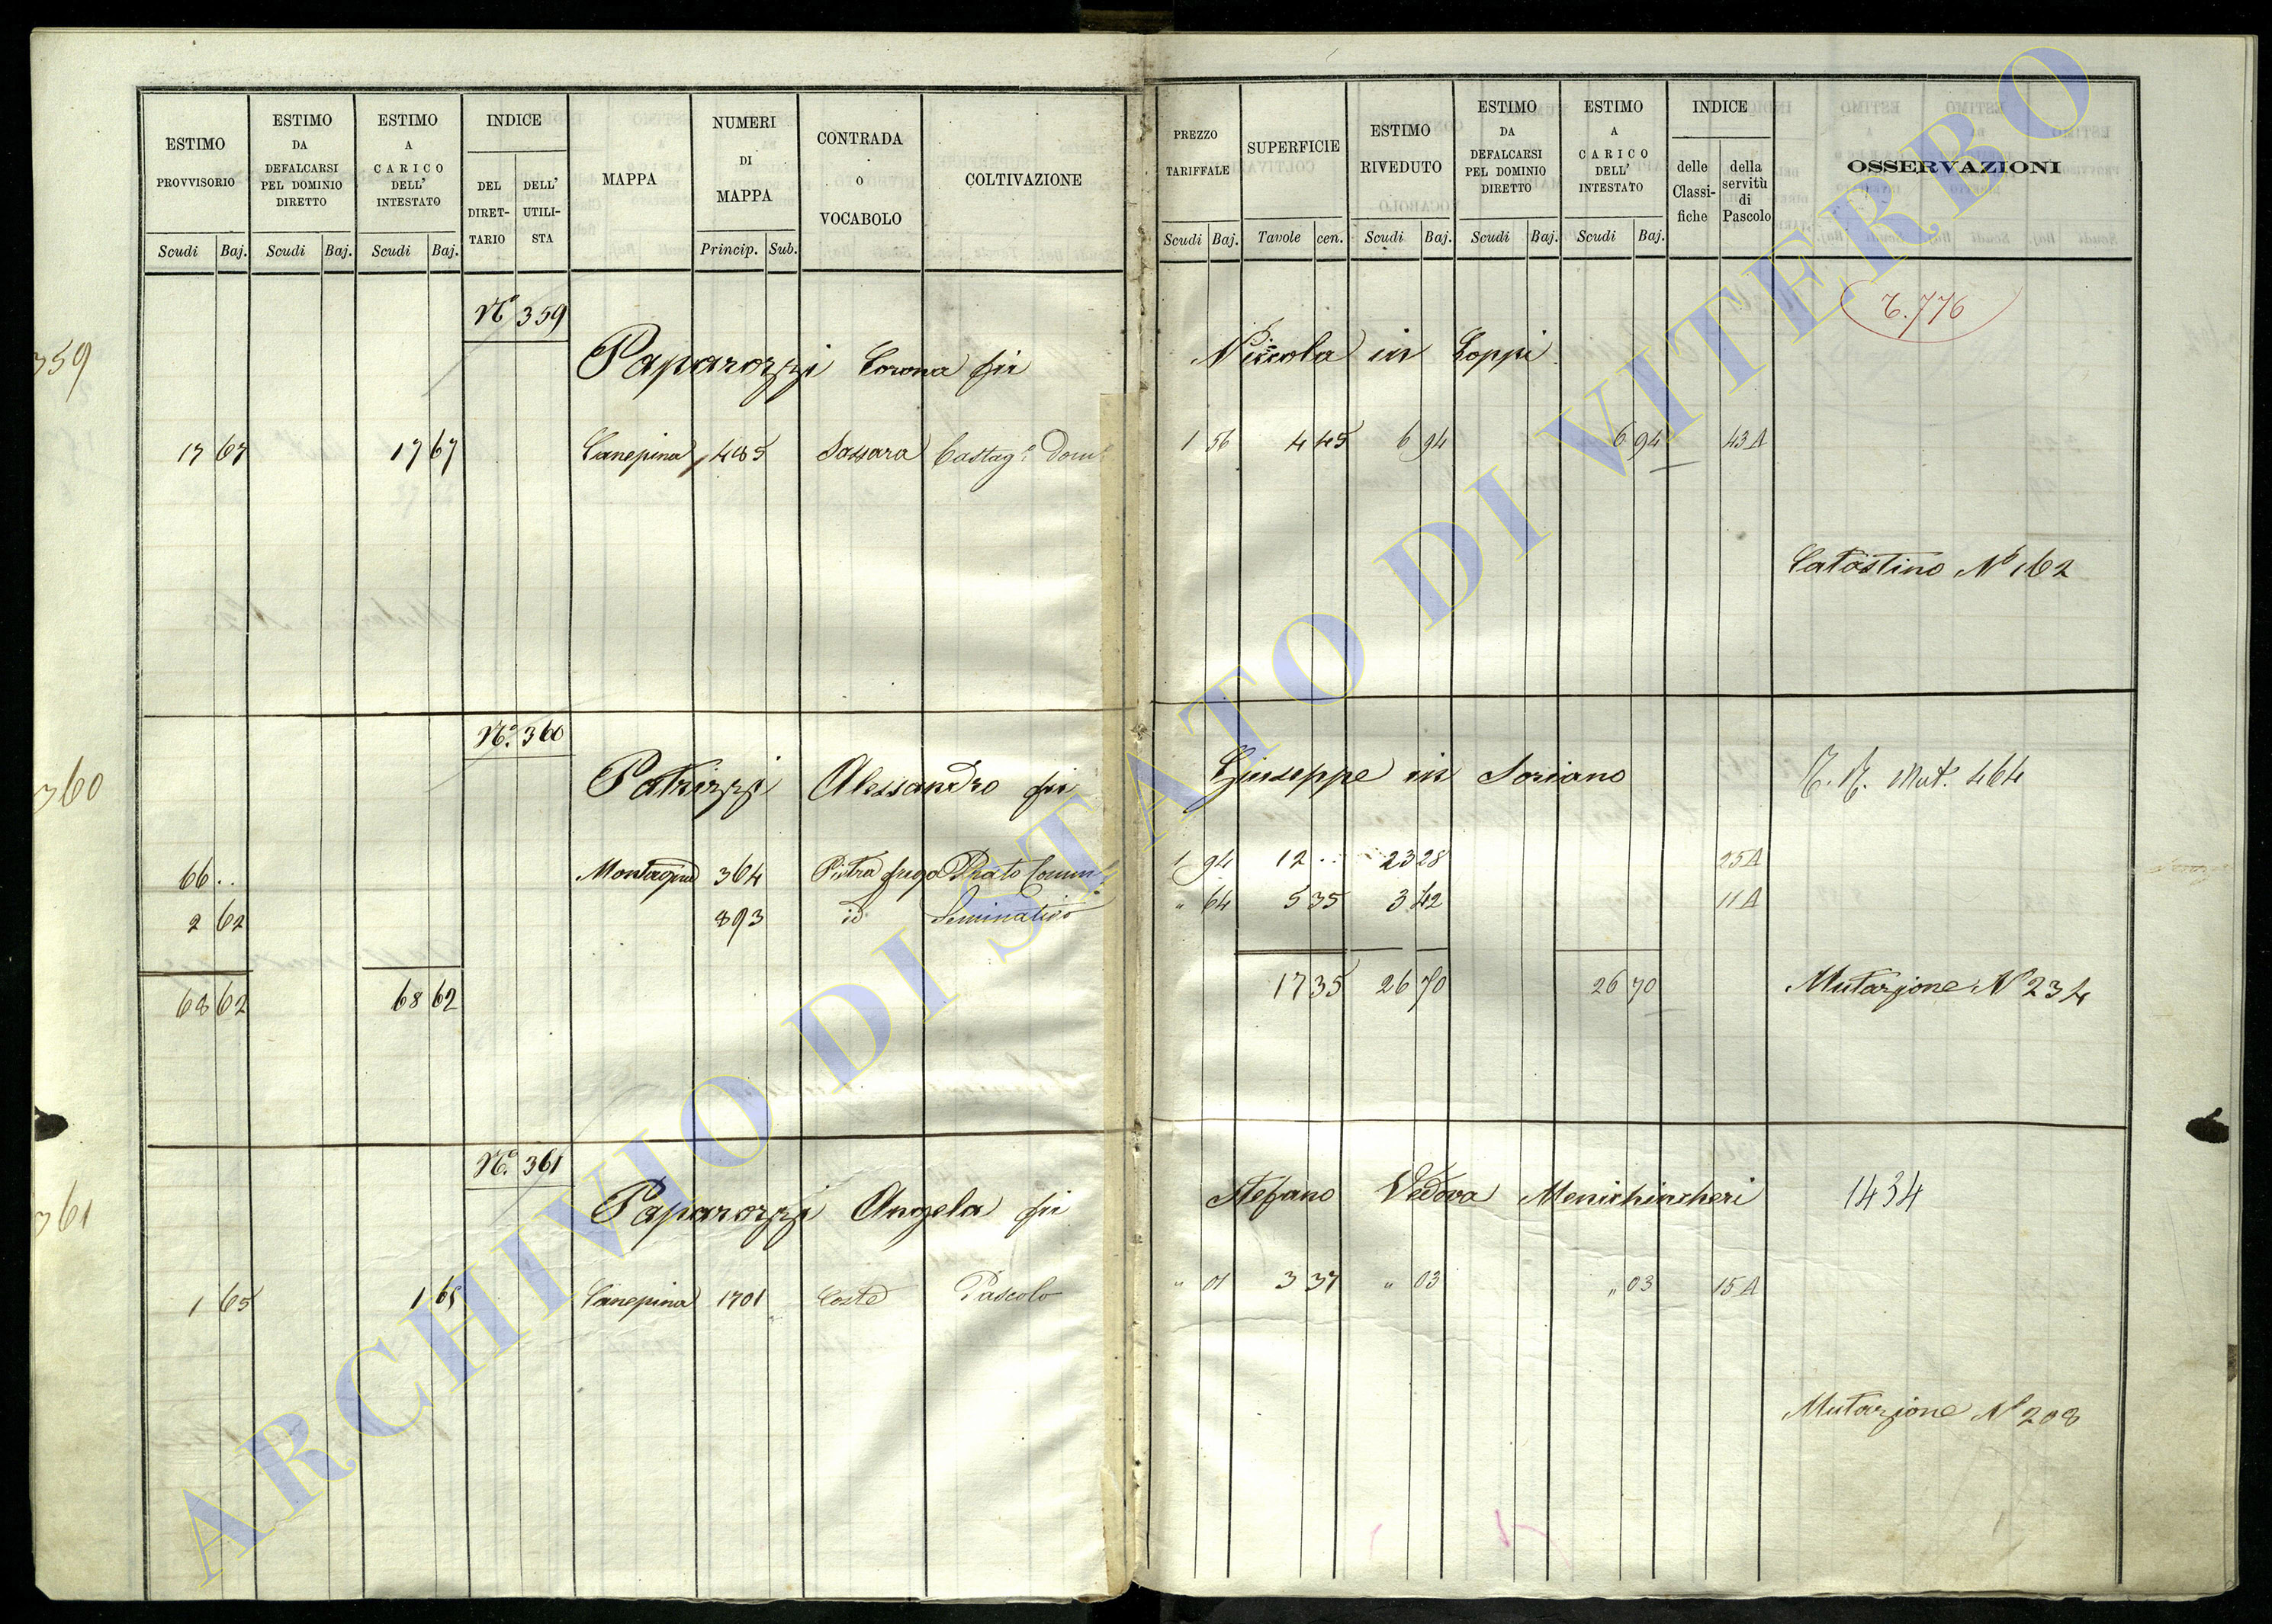 ESTIMO PROVVISORIO Scudi Baj.
ESTIMO DA DEFALCARSI PEL DOMINIO DIRETTO Scudi Baj.
ESTIMO A CARICO DELL' INTESTATO Scudi Baj.
INDICE DEL DIRETTARIO DELL' UTILISTA
MAPPA
NUMERI DI MAPPA Princip. Sub.
CONTRADA O VOCABOLO
COLTIVAZIONE
PREZZO TARIFFALE Scudi Baj.
SUPERFICIE Tavole cen.
ESTIMO RIVEDUTO Scudi Baj.
ESTIMO DA DEFALCARSI PEL DOMINIO DIRETTO Scudi Baj.
ESTIMO A CARICO DELL' INTESTATO Scudi Baj.
INDICE delle Classifiche della servitù di Pascolo
OSSERVAZIONI
359
N° 359
Paparozzi Corona fu Niccola in Loppi
776
17 67 17 67 Canepina 485 Sassara Castag. Dom. 1 56 4 45 6 94 6 94 43 A
Catastino N° 162
360
N° 360
Patrizzi Alessandro fu Giuseppe in Soriano Mut. 464
66 .. 364 Prato 1 94 12 .. 23 28 25 A
2 62 893 id Seminativo " 64 5 35 3 42 11 A
68 62 68 62 17 35 26 70 26 70 Mutazione N° 234
361
N° 361
Paparozzi Angela fu Stefano Vedova Menichincheri 1434
1 65 1 65 Canepina 1701 Coste Pascolo " 01 3 37 " 03 " 03 15 A
Mutazione N° 208
ARCHIVIO DI STATO DI VITERBO